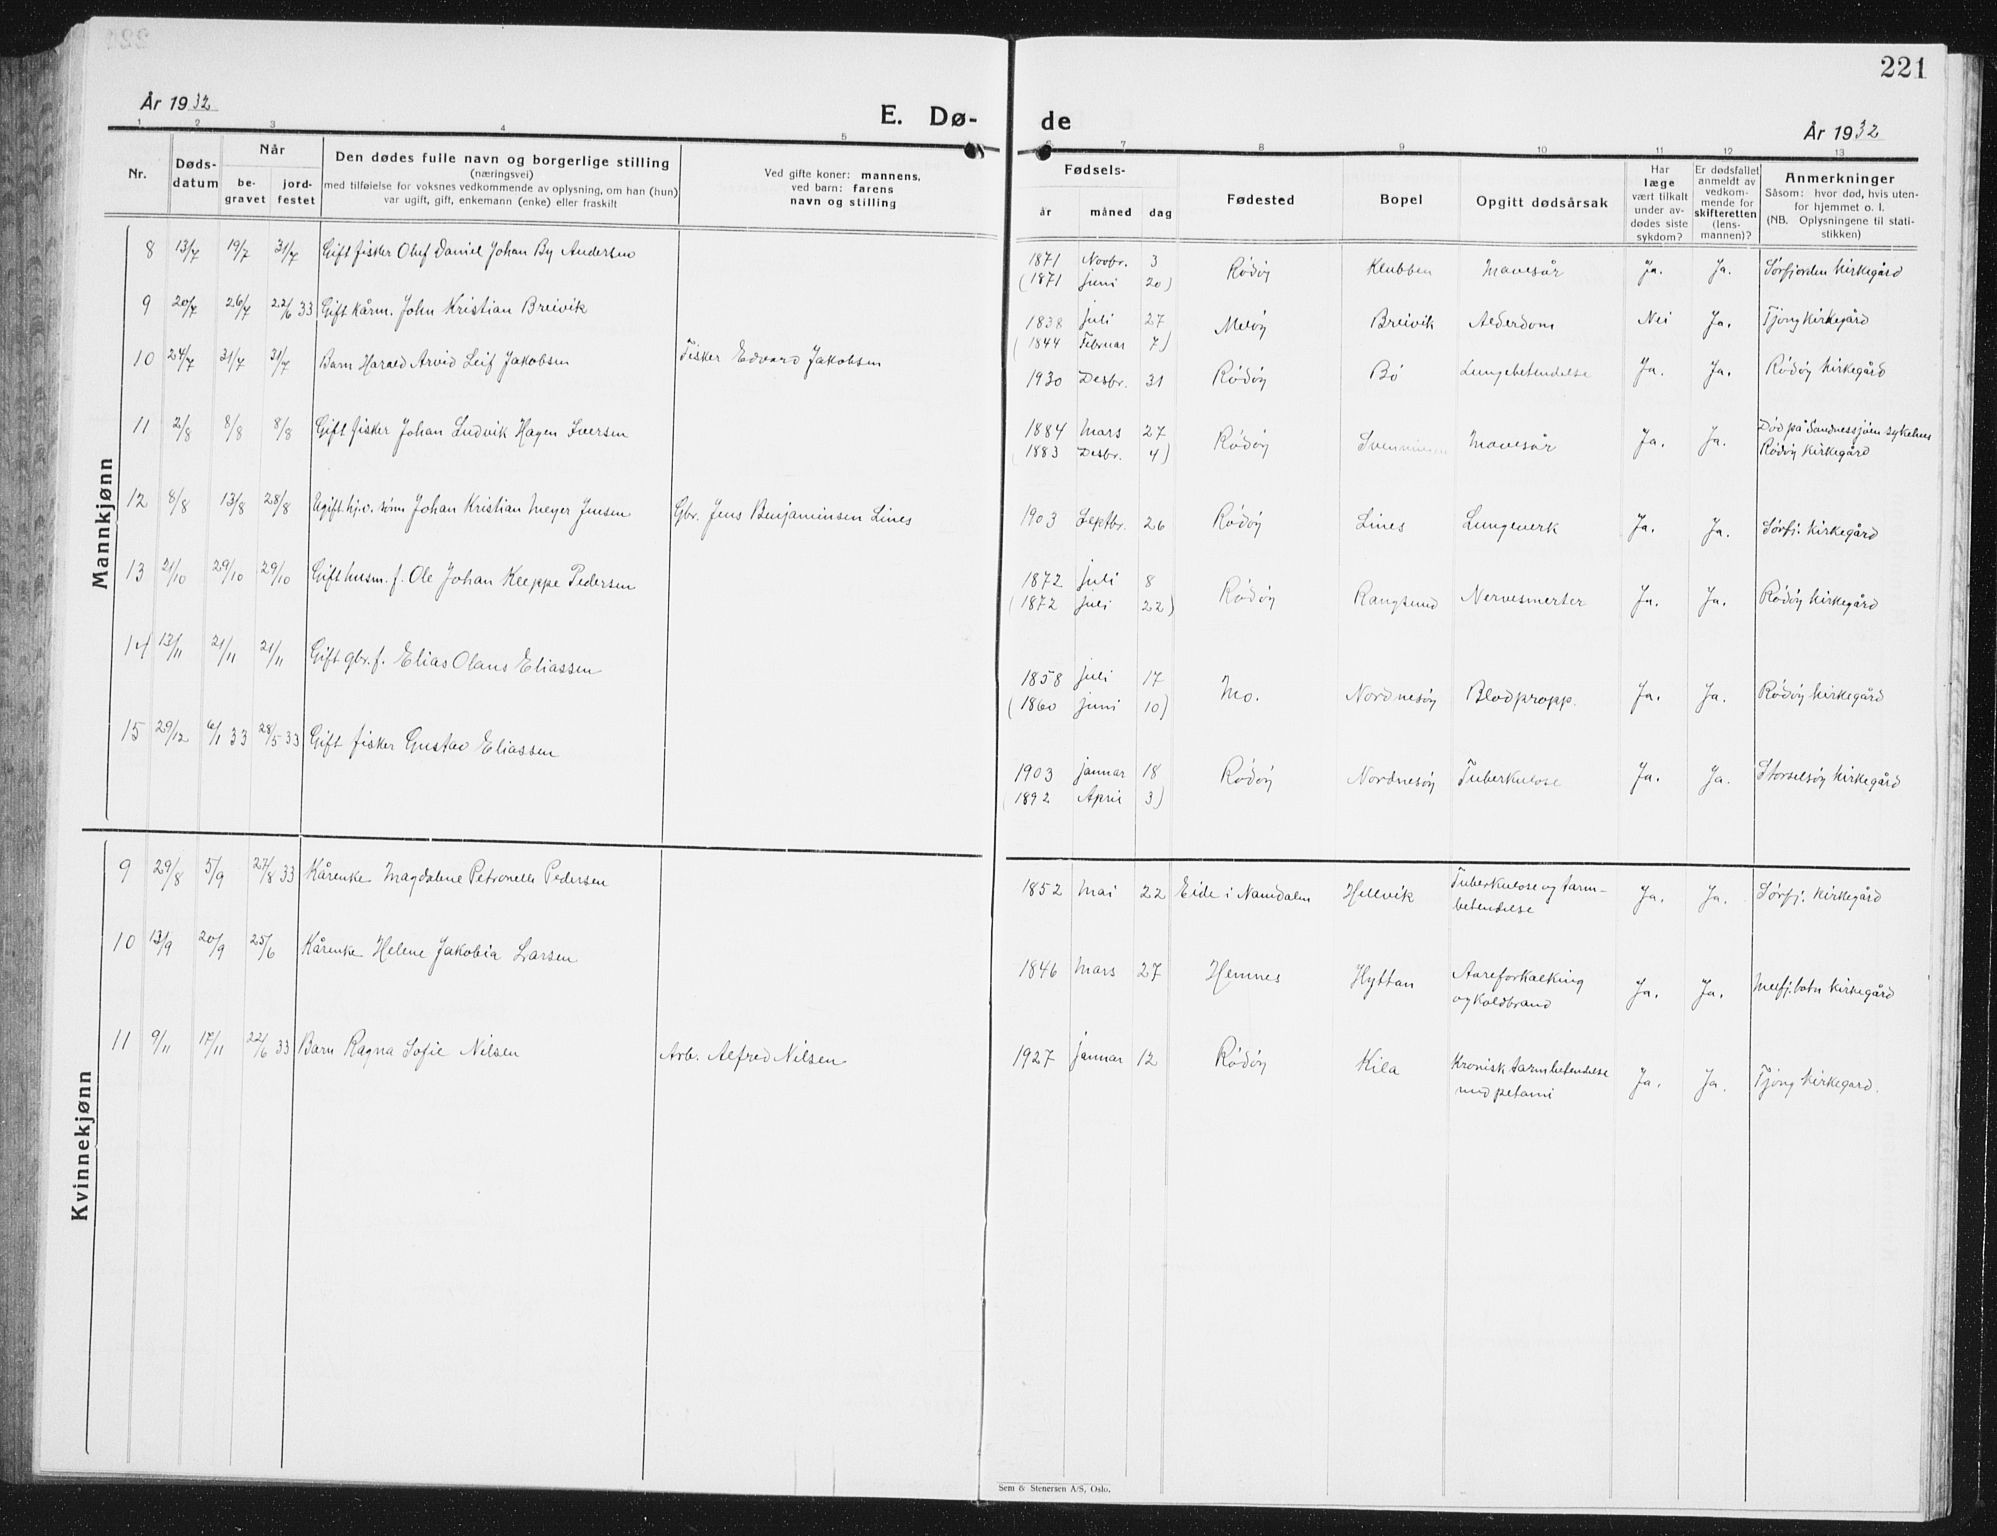 221
År 1932
E. Dø-
de
År 1932
1 2 3 4 5 6 7 8 9 10 11 12 13
Nr.
Døds-
datum
Når
be-
gravet
jord-
festet
Den dødes fulle navn og borgerlige stilling
(næringsvei)
med tilføielse for voksnes vedkommende av oplysning, om han (hun)
var ugift, gift, enkemann (enke) eller fraskilt
Ved gifte koner: mannens,
ved barn: farens
navn og stilling
Fødsels-
år måned dag
Fødested
Bopel
Opgitt dødsårsak
Har
læge
vært tilkalt
under av-
dødes siste
sykdom?
Er dødsfallet
anmeldt av
vedkom-
mende for
skifteretten
(lens-
mannen)?
Anmerkninger
Såsom: hvor død, hvis uten-
for hjemmet o. l.
(NB. Oplysningene til stati-
stikken)
Mannkjønn
8 13/7 19/7 31/7 Gift fisker Oluf Daniel Johan By Andersen 1871 Novbr. 3 Rödöy Klubben Mavesår Ja. Ja. Sørfjorden Kirkegård
(1871 juni 20)
9 20/7 26/7 22/6 33 Gift kårm. John Kristian Breivik 1838 juli 27 Melöy Breivik Alderdom Nei Ja. Tjong Kirkegård
(1844 Februar 7)
10 24/7 31/7 31/7 Barn Harald Arvid Leif Jakobsen Fisker Edvard Jakobsen 1930 Desbr. 31 Rödöy Bö Lungebetendelse Ja. Ja. Rödöy Kirkegård
11 2/8 8/8 8/8 Gift fisker Johan Ludvik Hagen Iversen 1884 Mars 27 Rödöy Mavesår Ja. Ja. Död på Sandnessjöen sykehus
(1883 Desbr. 4) Rödöy Kirkegård
12 8/8 13/8 28/8 Ugift hj.v. sönn Johan Kristian Meyer Jensen Gbr. Jens Benjaminsen Lines 1903 Septbr. 26 Rödöy Lines Lungeverk Ja. Ja. Sörfj. Kirkegård
13 21/10 29/10 29/10 Gift husm. f. Ole Johan Kleppe Pedersen 1872 juli 8 Rödöy Rangsund Nervesmerter Ja. Ja. Rödöy Kirkegård
(1872 juli 22)
14 13/11 21/11 21/11 Gift gbr. f. Elias Olaus Eliassen 1858 juli 17 Mo. Nordnesöy Blodpropp. Ja. Ja. Rödöy Kirkegård
(1860 juni 10)
15 29/12 6/1 33 28/5 33 Gift fisker Gustav Eliassen 1903 januar 18 Rödöy Nordnesöy Tuberkulose Ja. Ja. Storselsöy Kirkegård
(1892 April 3)
Kvinnekjønn
9 29/8 5/9 27/8 33 Kårenke Magdalene Petronelle Pedersen 1852 Mai 22 Eide i Namdalen Hellvik Tuberkulose og tarm-
betendelse Ja. Ja. Sörfj. Kirkegård
10 13/9 20/9 25/6 Kårenke Helene Jakobia Larsen 1846 Mars 27 Hemnes Hyttan Aareforkalking
og koldbrand Ja. Ja. Melfj. botn Kirkegård
11 9/11 17/11 22/6 33 Barn Ragna Sofie Nilsen Arb. Alfred Nilsen 1927 januar 12 Rödöy Kila Kronisk tarmbetendelse
med petami Ja. Ja. Tjong Kirkegard.
Sem & Stenersen A/S, Oslo.